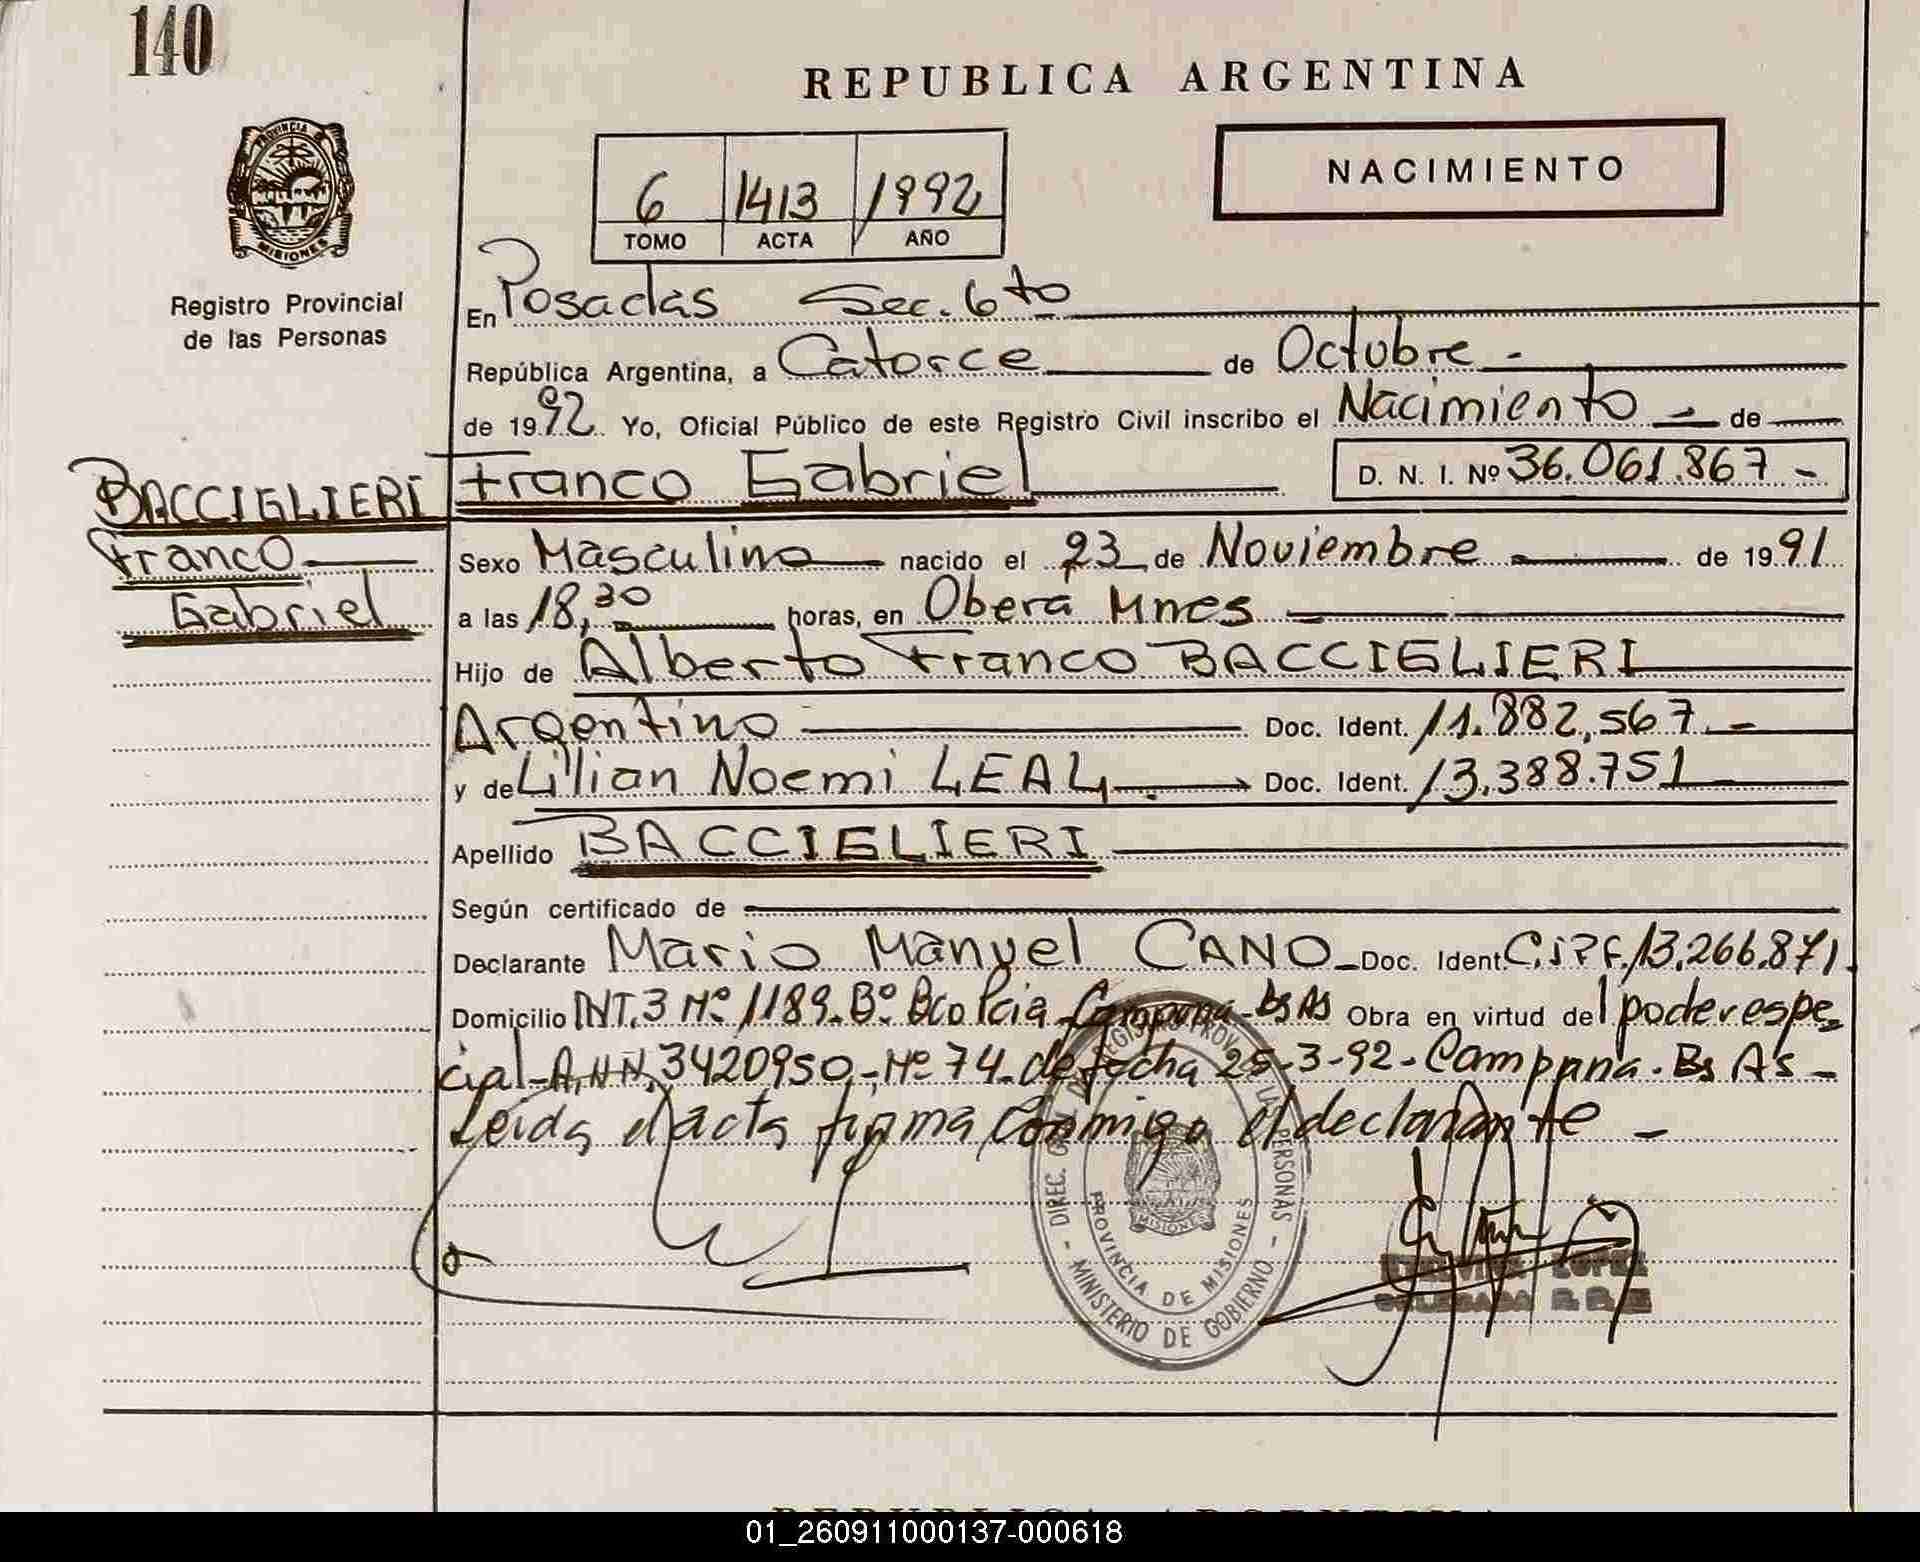 140
REPUBLICA ARGENTINA
NACIMIENTO
6 1413 1992
TOMO ACTA AÑO
PROVINCIA DE MISIONES
Registro Provincial
de las Personas
En Posadas Sec. 6to
República Argentina, a Catorce de Octubre -
de 1992 Yo, Oficial Público de este Registro Civil inscribo el Nacimiento - de
BACCIGLIERI
Franco
Gabriel
Franco Gabriel D. N. I. Nº 36.061.867 -
Sexo Masculino nacido el 23 de Noviembre de 1991
a las 18,30 horas, en Oberá Mnes
Hijo de Alberto Franco BACCIGLIERI
Argentino Doc. Ident. 11.882,567.-
y de Lilian Noemi LEAL Doc. Ident. 13.388.751
Apellido BACCIGLIERI
Según certificado de
Declarante Mario Manuel CANO Doc. Ident. C.I.P.F. 13.266.871
Domicilio INT. 3 Nº 1189. Bº Bco Pcia Campana - Bs As Obra en virtud del poder espe-
cial - A.NN. 3420950 - Nº 74 de fecha 25-3-92 - Campana. Bs As -
Leida el acta firma conmigo el declarante -
DIREC. GRAL. DEL REGISTRO PROV. DE LAS PERSONAS - MINISTERIO DE GOBIERNO -
PROVINCIA DE MISIONES
MISIONES
LOPEZ
DELEGADA R. P.
01_260911000137-000618